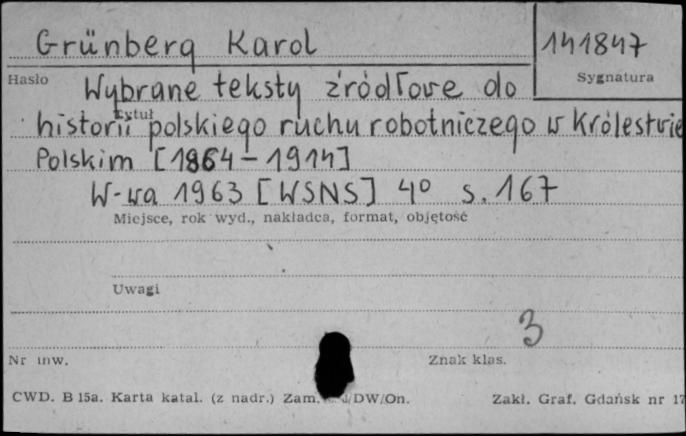 Grünberg Karol
141847
Hasło
Sygnatura
Wybrane teksty źródłowe do
Tytuł
historii polskiego ruchu robotniczego w Królestwie
Polskim [1864-1914]
W-wa 1963 [WSNS] 4° s. 167
Miejsce, rok wyd., nakładca, format, objętość
Uwagi
3
Nr inw.
Znak klas.
CWD. B 15a. Karta katal. (z nadr.) Zam. /DW/On.
Zakł. Graf. Gdańsk nr 17